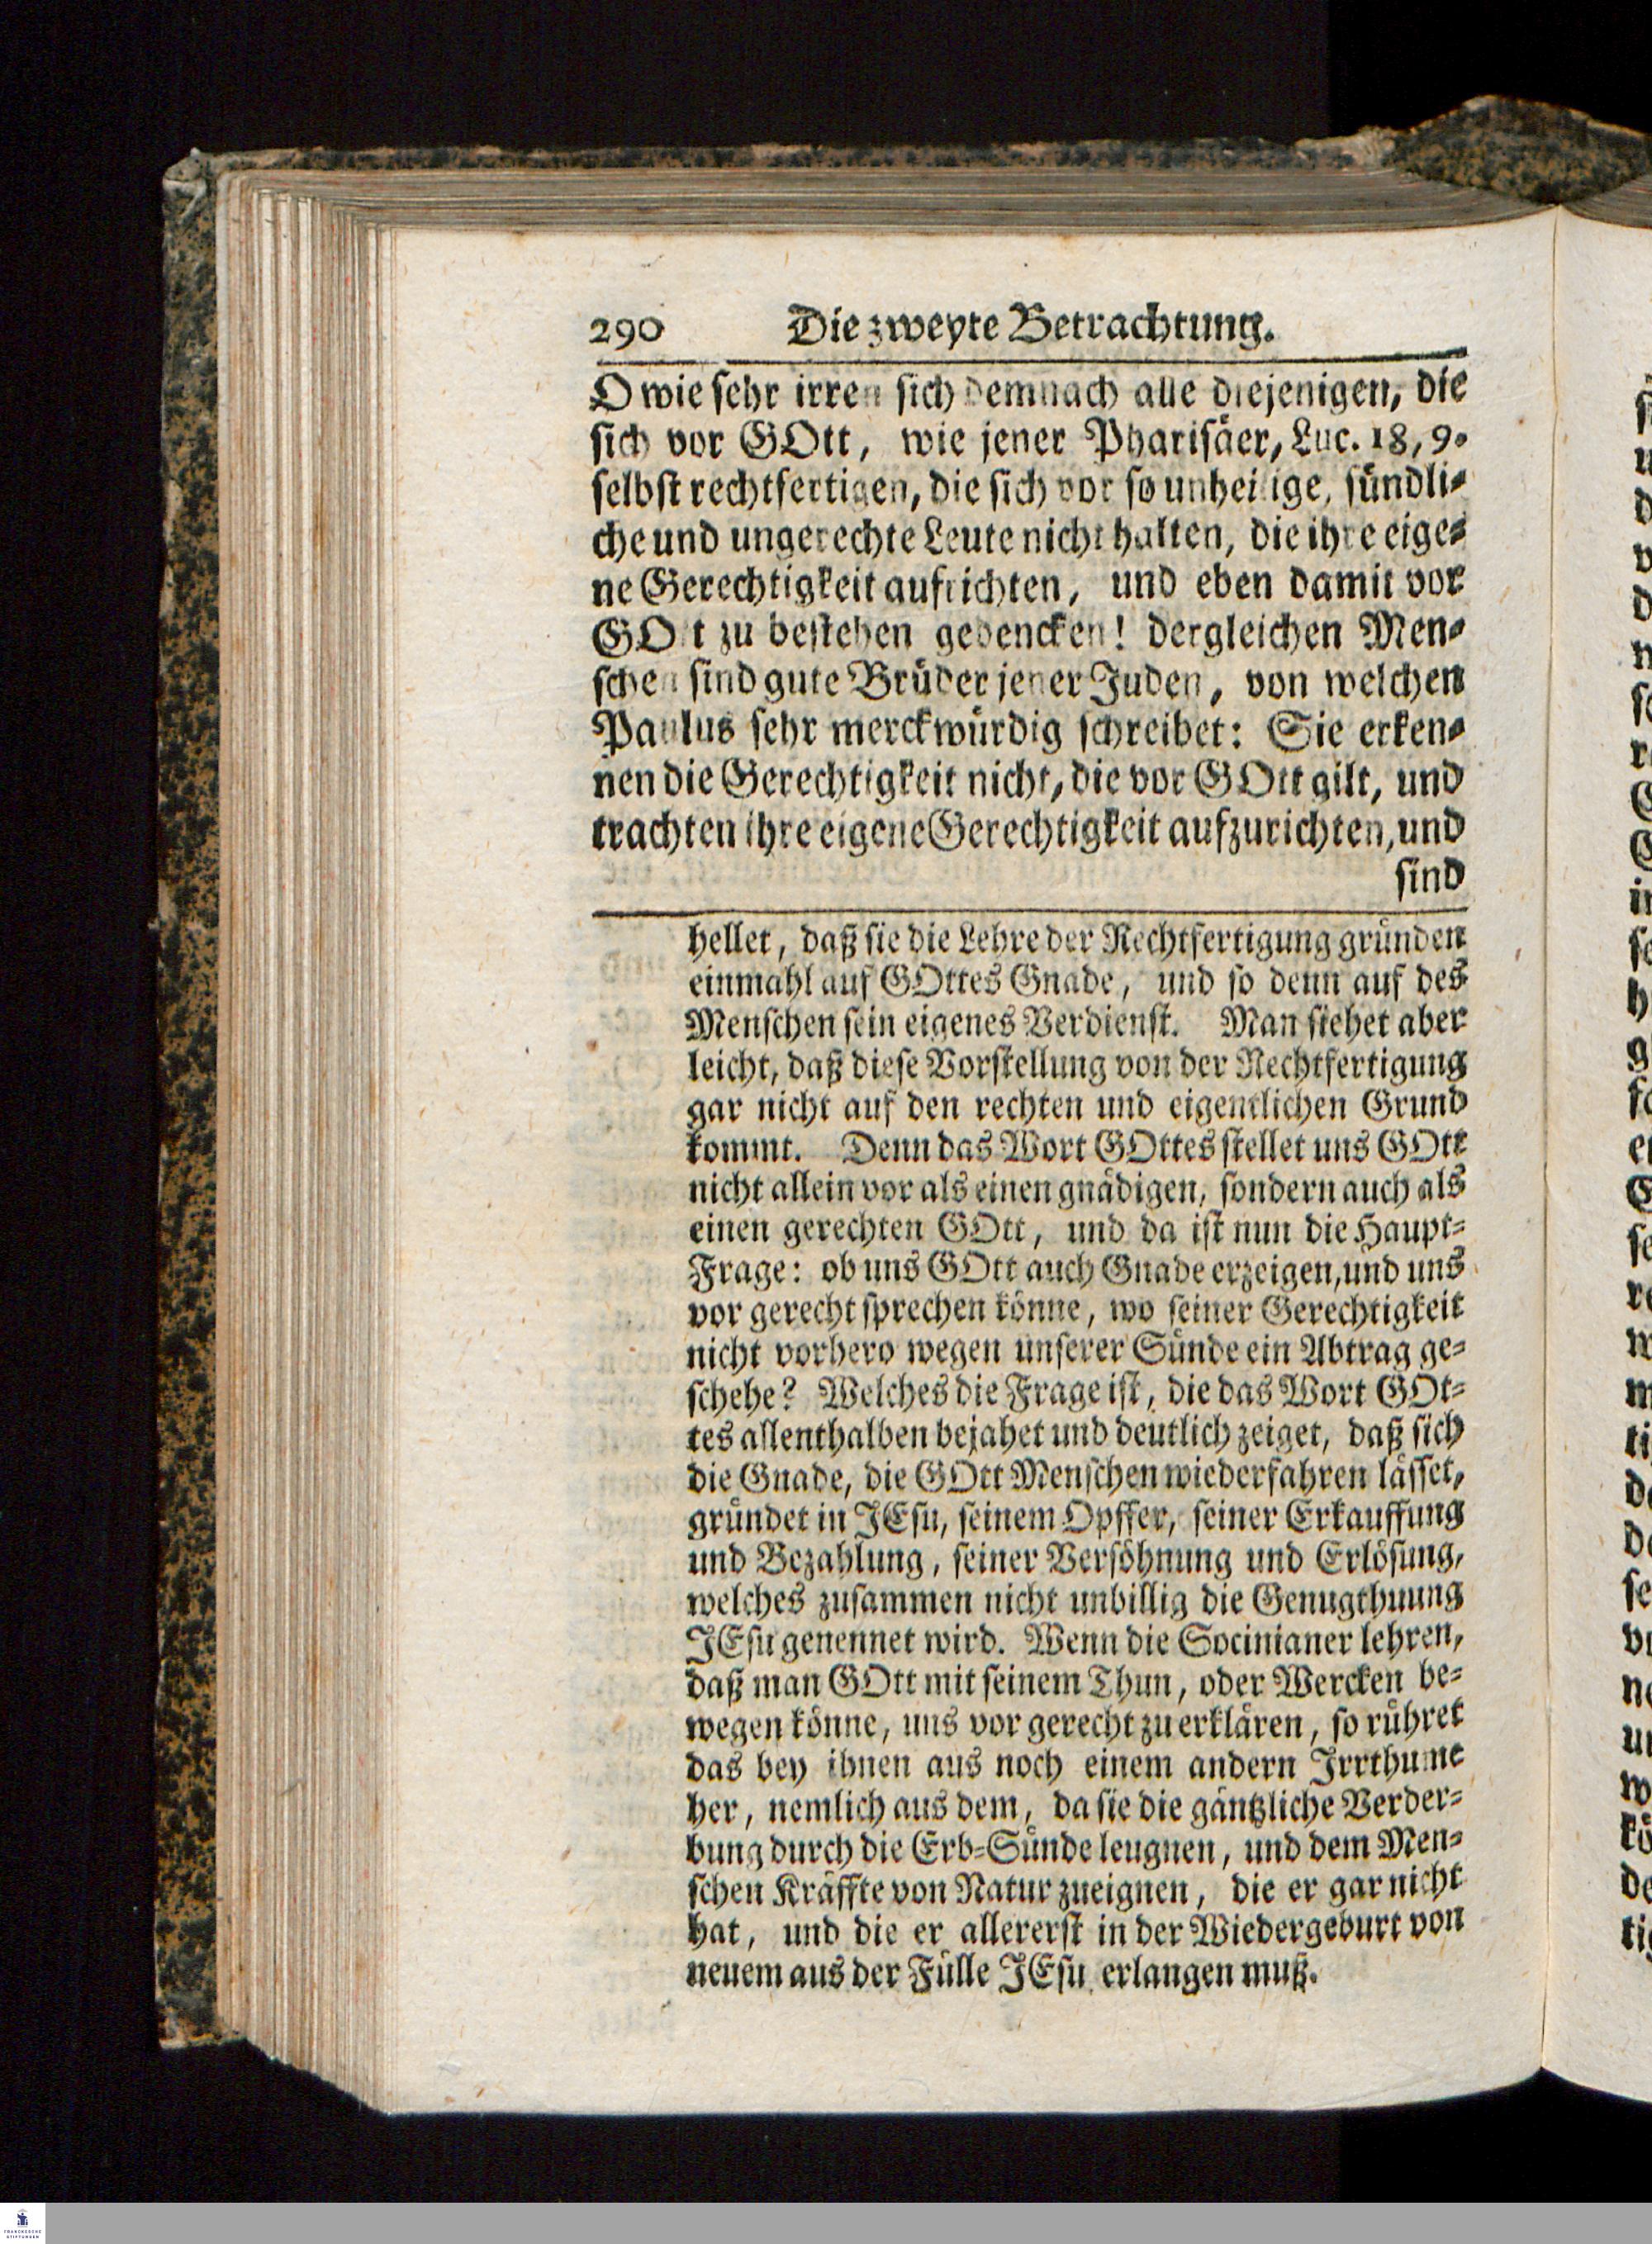 290 Die zweyte Betrachtung.
O wie sehr irren sich demnach alle diejenigen, die
sich vor GOtt, wie jener Pharisäer, Luc. 18, 9.
selbst rechtfertigen, die sich vor so unheilige, sündli-
che und ungerechte Leute nicht halten, die ihre eige-
ne Gerechtigkeit aufrichten, und eben damit vor
GOtt zu bestehen gedencken! dergleichen Men-
schen sind gute Brüder jener Juden, von welchen
Paulus sehr merckwürdig schreibet: Sie erken-
nen die Gerechtigkeit nicht, die vor GOtt gilt, und
trachten ihre eigene Gerechtigkeit aufzurichten, und
sind
hellet, daß sie die Lehre der Rechtfertigung gründen
einmahl auf GOttes Gnade, und so denn auf des
Menschen sein eigenes Verdienst. Man siehet aber
leicht, daß diese Vorstellung von der Rechtfertigung
gar nicht auf den rechten und eigentlichen Grund
kommt. Denn das Wort GOttes stellet uns GOtt
nicht allein vor als einen gnädigen, sondern auch als
einen gerechten GOtt, und da ist nun die Haupt-
Frage: ob uns GOtt auch Gnade erzeigen, und uns
vor gerecht sprechen könne, wo seiner Gerechtigkeit
nicht vorhero wegen unserer Sünde ein Abtrag ge-
schehe? Welches die Frage ist, die das Wort GOt-
tes allenthalben bejahet und deutlich zeiget, daß sich
die Gnade, die GOtt Menschen wiederfahren lässet,
gründet in JEsu, seinem Opffer, seiner Erkauffung
und Bezahlung, seiner Versöhnung und Erlösung,
welches zusammen nicht unbillig die Genugthuung
JEsu genennet wird. Wenn die Socinianer lehren,
daß man GOtt mit seinem Thun, oder Wercken be-
wegen könne, uns vor gerecht zu erklären, so rühret
das bey ihnen aus noch einem andern Irrthume
her, nemlich aus dem, da sie die gäntzliche Verder-
bung durch die Erb-Sünde leugnen, und dem Men-
schen Kräffte von Natur zueignen, die er gar nicht
hat, und die er allererst in der Wiedergeburt von
neuem aus der Fülle JEsu erlangen muß.
FRANCKESCHE
STIFTUNGEN